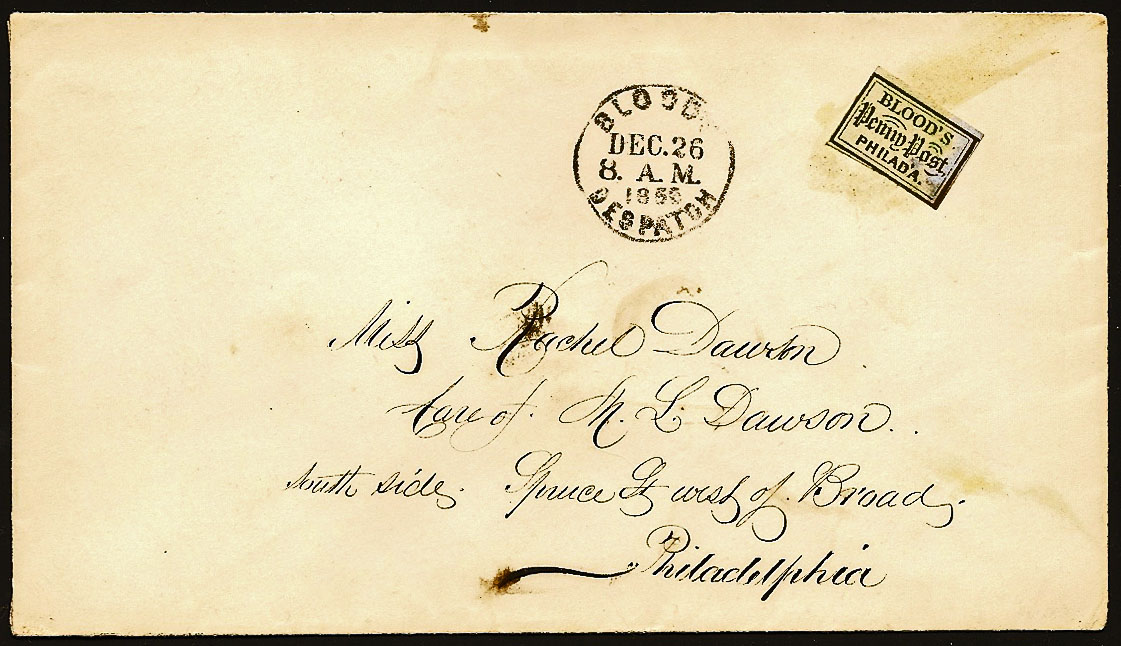 BLOOD'S
DEC. 26
8. A. M.
1855
DESPATCH
BLOOD'S
Penny Post
PHILAD'A.
Miss Rachel Dawson
Care of M. L. Dawson
South side Spruce St west of Broad
Philadelphia